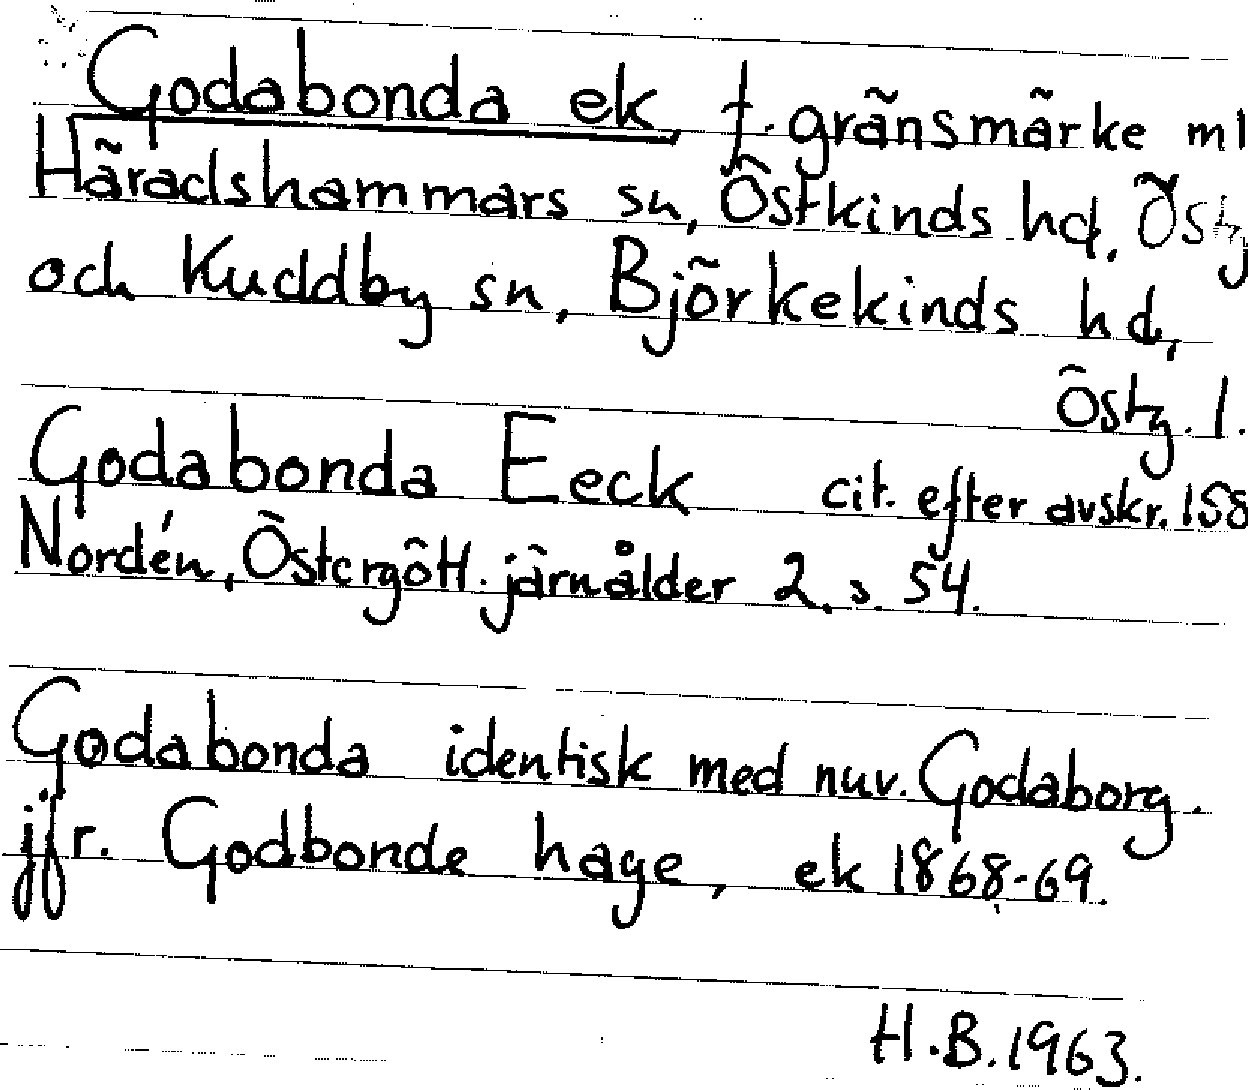 Godabonda ek, f. gränsmärke ml
Häradshammars sn, Östkinds hd, Östg
och Kuddby sn, Björkekinds hd,
Östg. l.
Godabonda Eeck cit. efter avskr. 158
Nordén, Östergött. järnålder 2, s. 54.
Godabonda identisk med nuv. Godaborg.
jfr. Godbonde hage, ek 1868-69.
H.B. 1963.